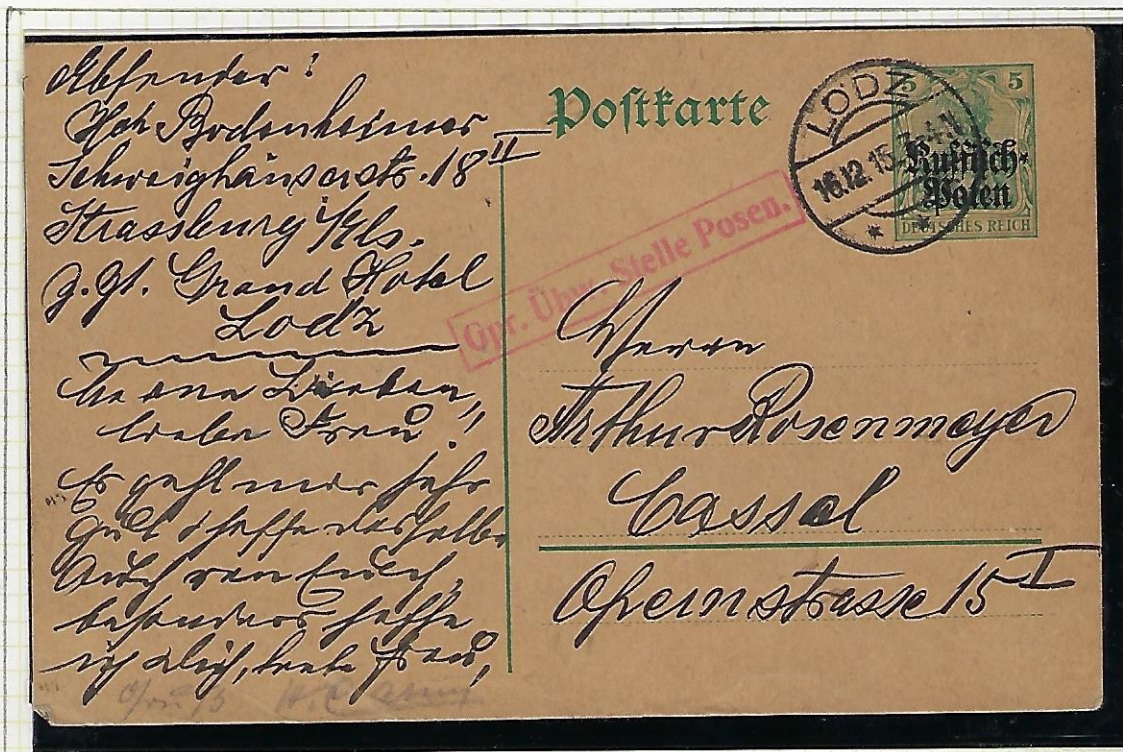 Absender!
Hch Bodenheimer
Schweighäuserstr. 18 II
Strassburg i/Els.
z. Zt. Grand Hotel
Lodz
Meine Lieben,
liebe Frau!
Es geht mir sehr
gut & hoffe dasselbe
auch von Euch,
besonders hoffe
ich Dich, liebe Frau,
Postkarte
LODZ
16.12.15
5 5
Russisch-
Polen
DEUTSCHES REICH
Gpr. Übw. Stelle Posen.
Herrn
Arthur Rosenmeyer
Cassel
Opernstrasse 15 I